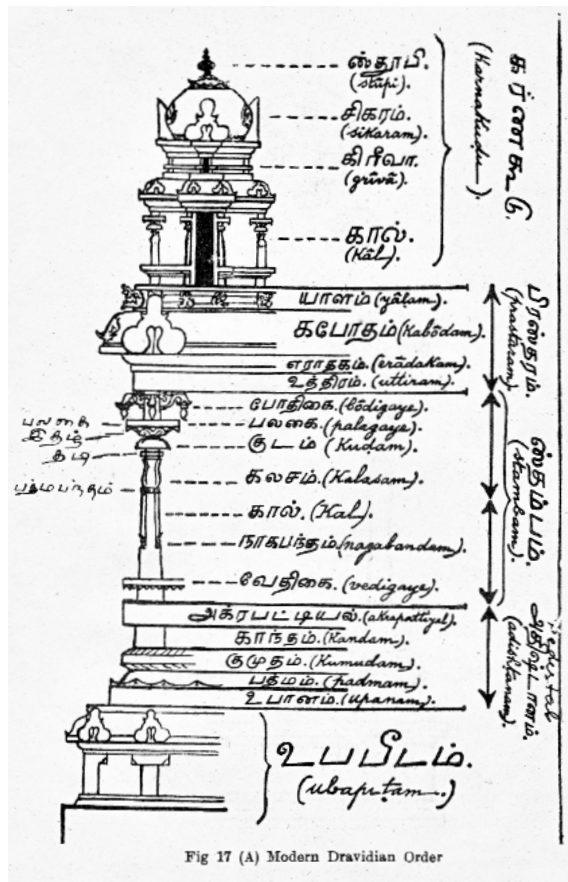 ஸ்தூபி.
(stūpi)
சிகரம்.
(sikaram).
கிரீவா.
(grīvā).
கால்.
(Kâl).
கர்ணகூடு.
(Karnakudu).
யாளம் (yâlam).
கபோதம் (Kabōdam).
எராதகம். (erādakam).
உத்திரம். (uttiram).
பிரஸ்தரம்.
(prastaram).
போதிகை. (bōdigaye).
பலகை. (palagaye).
குடம் (Kudam).
பலகை
இதழ்
தடி
கலசம். (Kalasam).
பத்மபந்தம்
கால். (Kal).
நாகபந்தம் (nagabandam).
வேதிகை. (vedigaye).
ஸ்தம்பம்.
(stambam).
அக்ரபட்டியல். (akrapattiyal).
காந்தம். (Kandam).
குமுதம். (Kumudam).
பத்மம். (padmam).
உபானம். (upanam).
Pedestal
அதிஷ்டானம்.
(adishtanam).
உபபீடம்.
(ubapıṭam.)
Fig 17 (A) Modern Dravidian Order